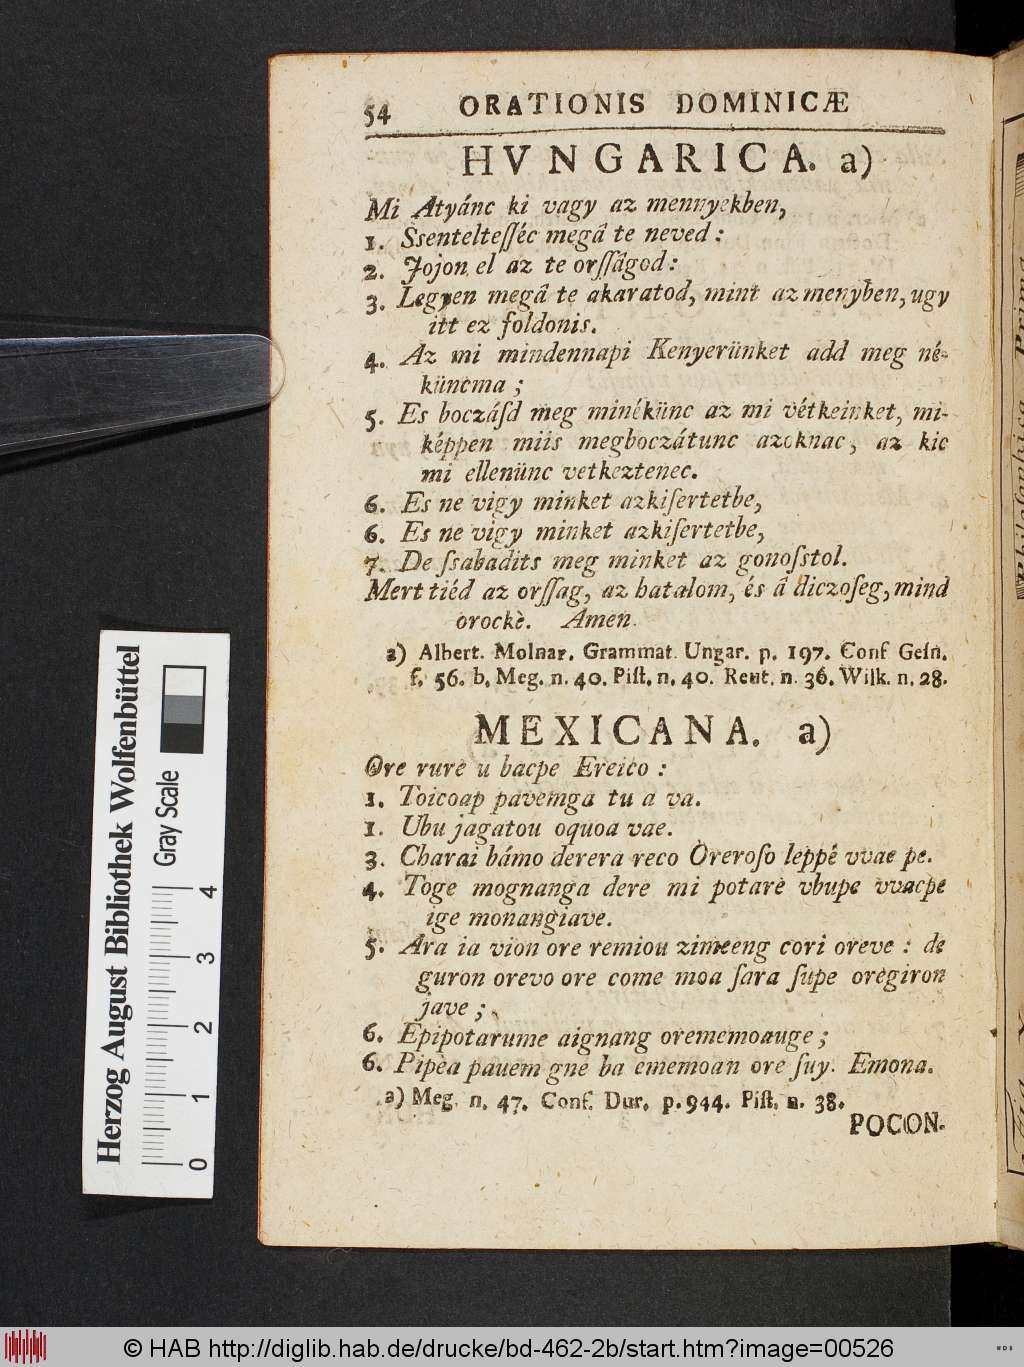 54 ORATIONIS DOMINICÆ
HVNGARICA. a)
Mi Atyánc ki vagy az mennyekben,
1. Ssentelteſſéc megâ te neved :
2. Jojon el az te orſſâgod :
3. Legyen megâ te akaratod, mint az menyben, ugy
itt ez foldonis.
4. Az mi mindennapi Kenyerünket add meg né-
küncma ;
5. Es boczáſd meg minékünc az mi vétkeinket, mi-
képpen miis megboczátunc azoknac, az kic
mi ellenünc vetkeztenec.
6. Es ne vigy minket azkiſertetbe,
6. Es ne vigy minket azkiſertetbe,
7. De ſsabadits meg minket az gonoſstol.
Mert tiéd az orſſag, az batalom, és â diczoſeg, mind
orockè. Amen.
a) Albert. Molnar. Grammat. Ungar. p. 197. Conf Geſn.
f. 56. b. Meg. n. 40. Piſt. n. 40. Reut. n. 36. Wilk. n. 28.
MEXICANA. a)
Ore rure u bacpe Ereico :
1. Toicoap pavemga tu a va.
1. Ubu jagatou oquoa vae.
3. Charai bámo derera reco Oreroſo leppé vvae pe.
4. Toge mognanga dere mi potare vbupe vvacpe
ige monangiave.
5. Ara ia vion ore remiou zimeeng cori oreve : de
guron orevo ore come moa ſara ſupe oregiron
jave ;
6. Epipotarume aignang orememoauge ;
6. Pipea pauem gne ba ememoan ore ſuy. Emona.
a) Meg. n. 47. Conf. Dur. p. 944. Piſt. n. 38.
POCON-
Herzog August Bibliothek Wolfenbüttel
Gray Scale
0 1 2 3 4
© HAB http://diglib.hab.de/drucke/bd-462-2b/start.htm?image=00526